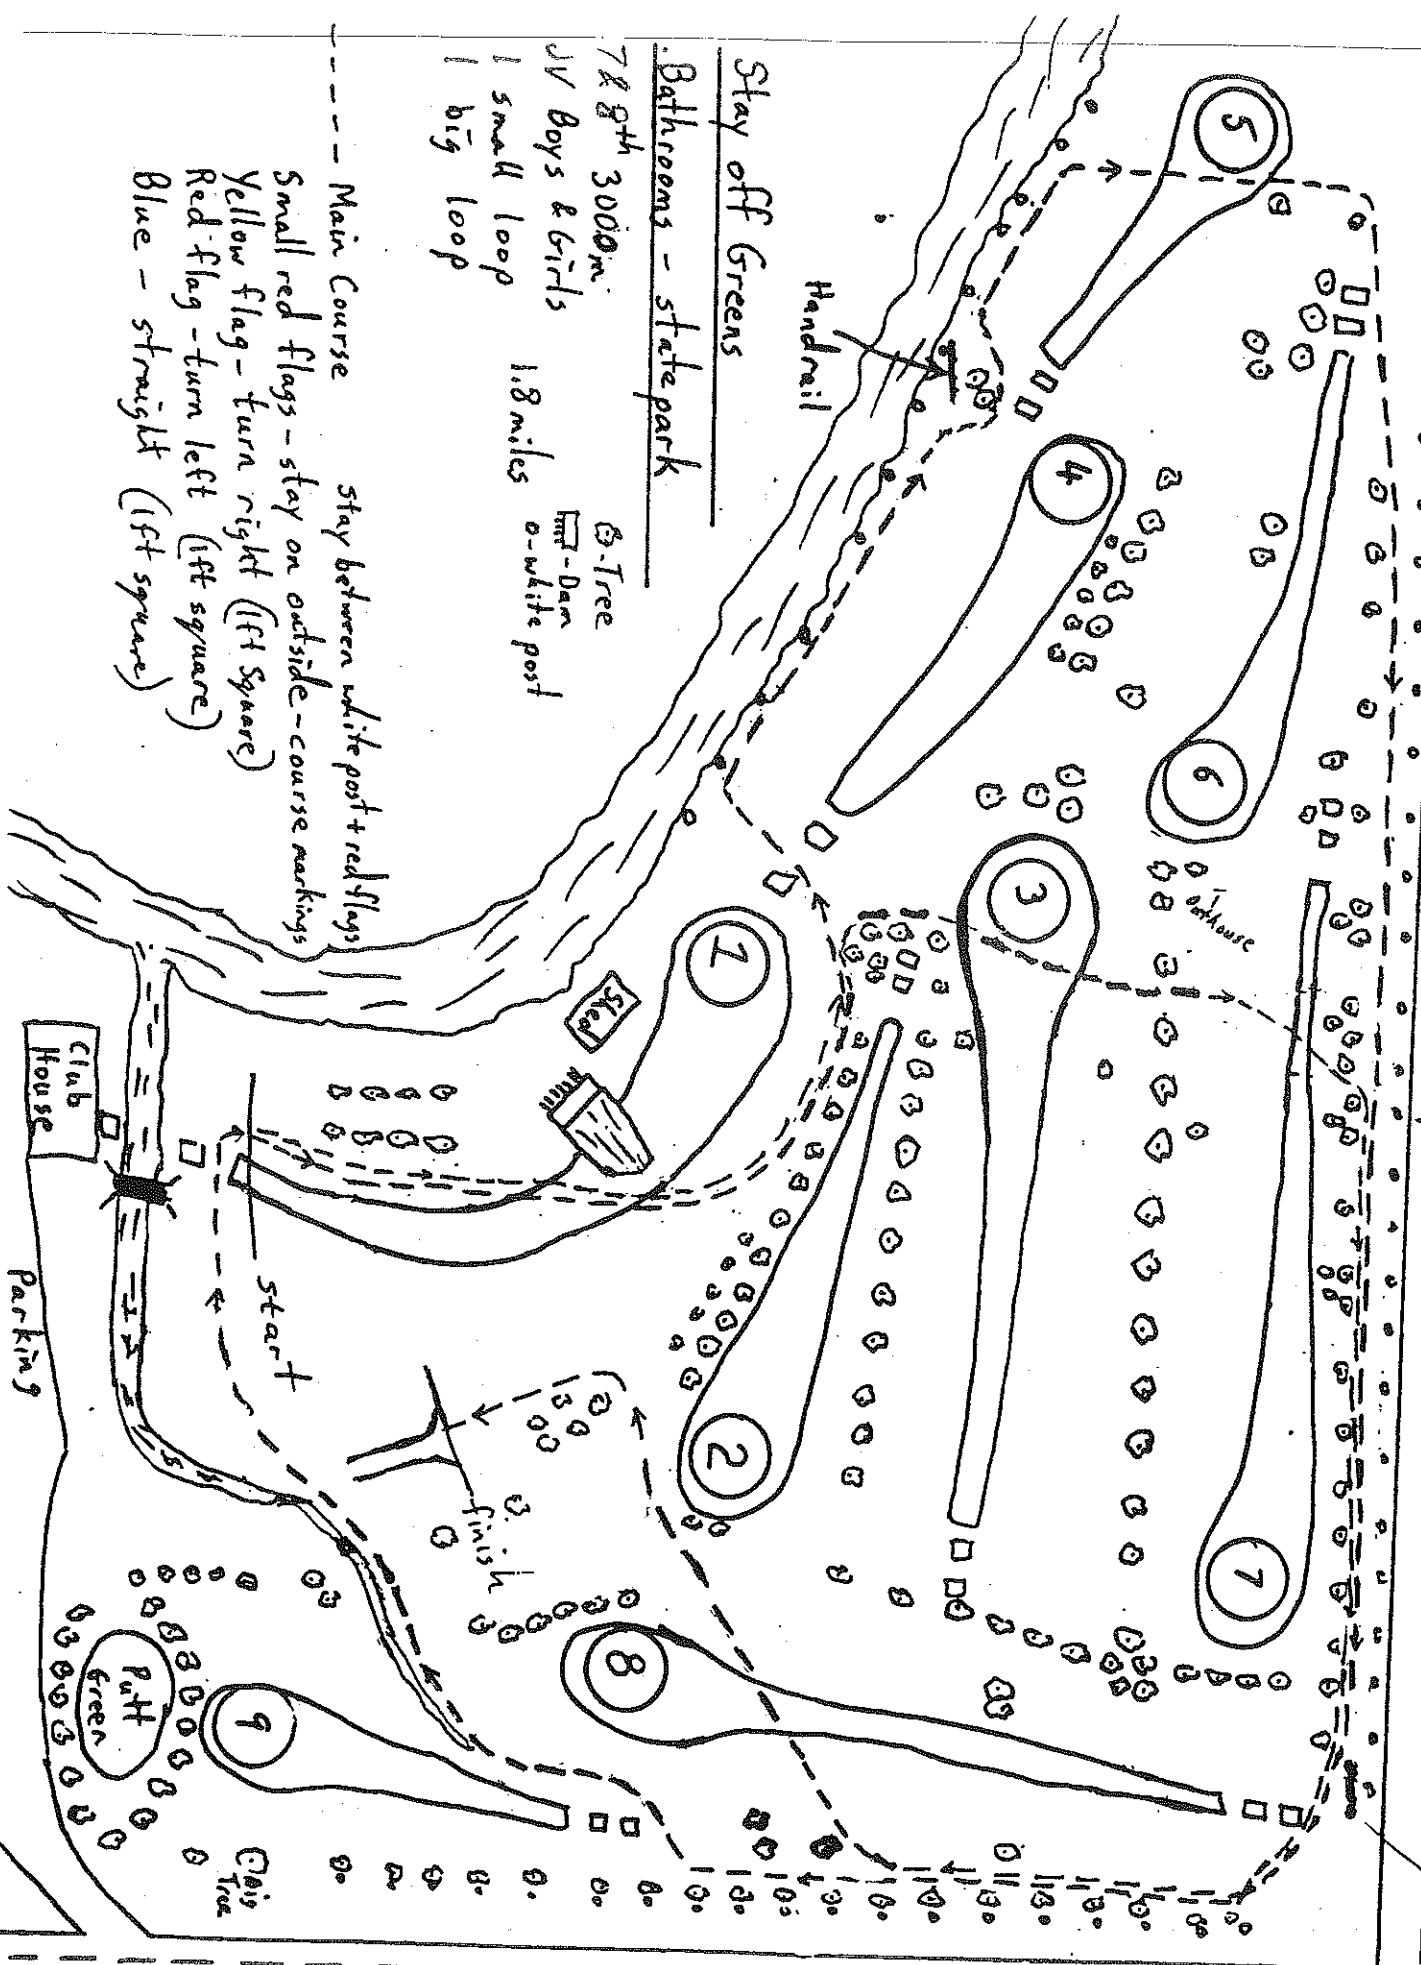 Stay off Greens
Bathrooms - state park
7 & 8th 3000m
JV Boys & Girls
1 small loop 1.8 miles
1 big loop
-Tree
-Dam
o-white post
----- Main Course stay between white post + red flags
Small red flags - stay on outside - course markings
Yellow flag - turn right (1ft Square)
Red flag - turn left (1ft square)
Blue - straight (1ft square)
Handrail
5
4
6
outhouse
3
1
Shed
Club
House
start
Parking
2
7
finish
8
9
Putt
Green
Big
Tree